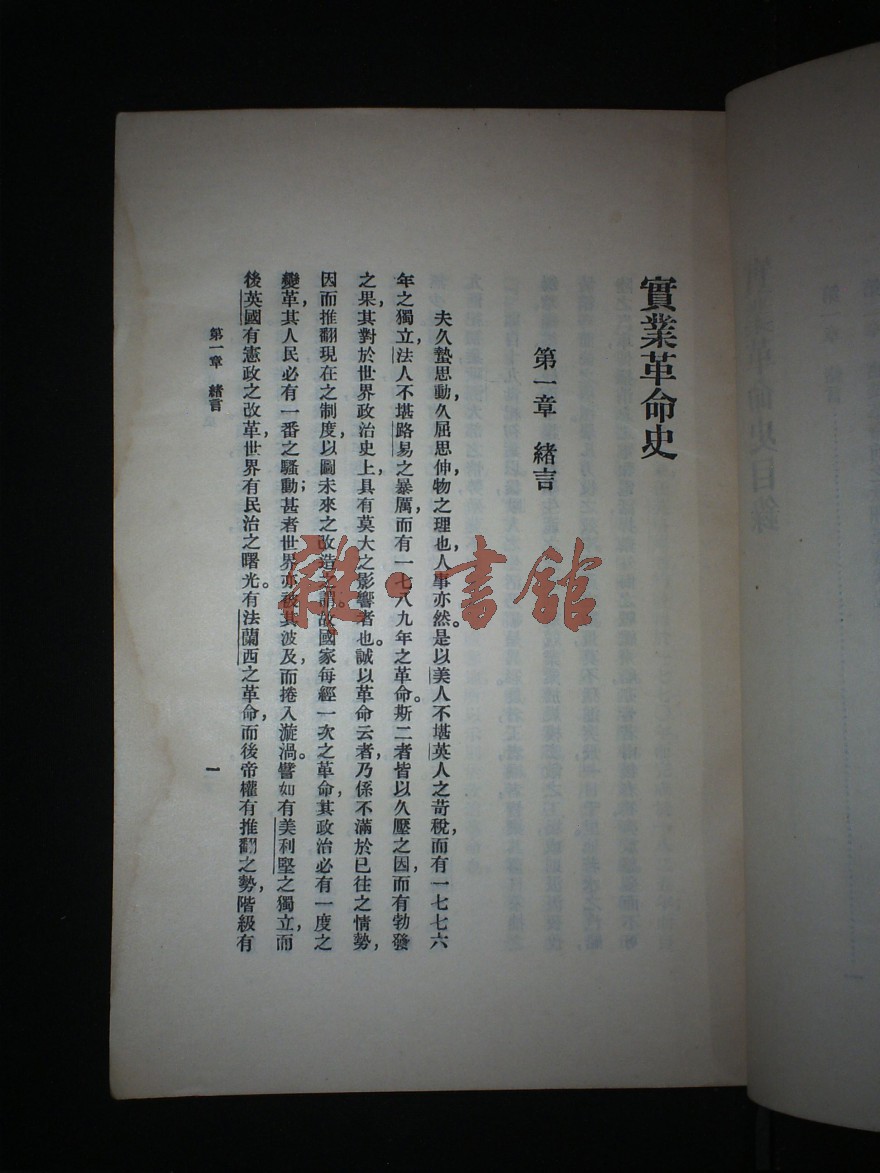 實業革命史
第一章 緒言
夫久蟄思動，久屈思伸，物之理也，人事亦然。是以美人不堪英人之苛稅，而有一七七六
年之獨立，法人不堪路易之暴厲，而有一七八九年之革命。斯二者皆以久壓之因，而有勃發
之果，其對於世界政治史上，具有莫大之影響者也。誠以革命云者，乃係不滿於已往之情勢，
因而推翻現在之制度，以圖未來之改造之謂。故國家每經一次之革命，其政治必有一度之
變革，其人民必有一番之騷動；甚者世界亦被其波及，而捲入漩渦。譬如有美利堅之獨立，而
後英國有憲政之改革，世界有民治之曙光。有法蘭西之革命，而後帝權有推翻之勢，階級有
第一章 緒言
一
雜·書館